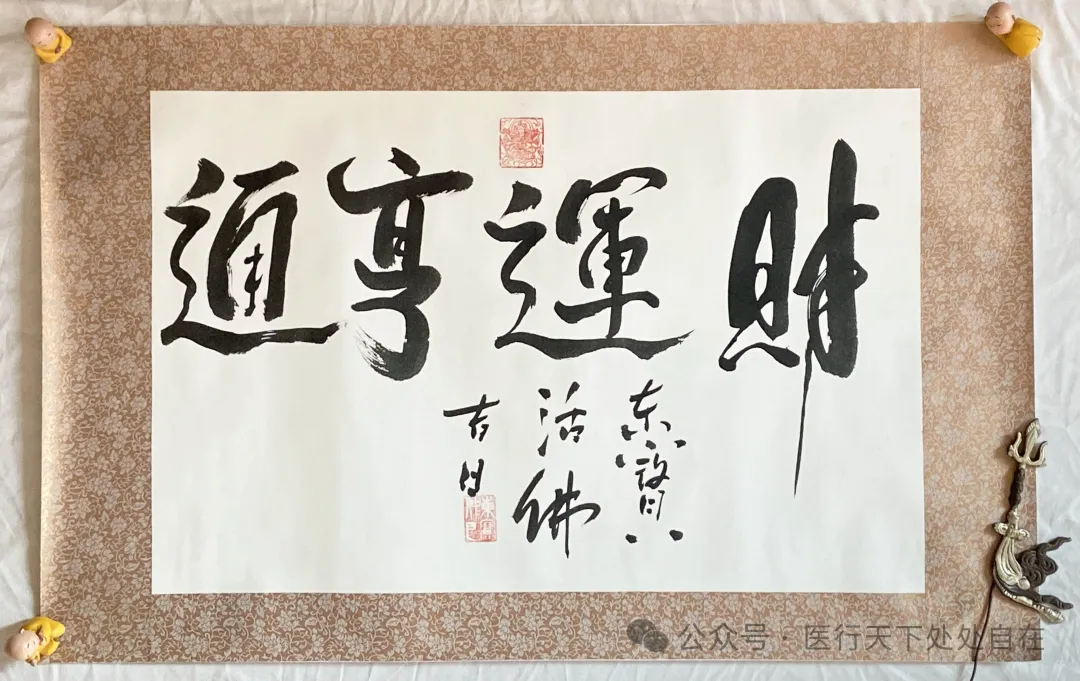 財運亨通
东寶
活佛
吉日
公众号 · 医行天下处处自在